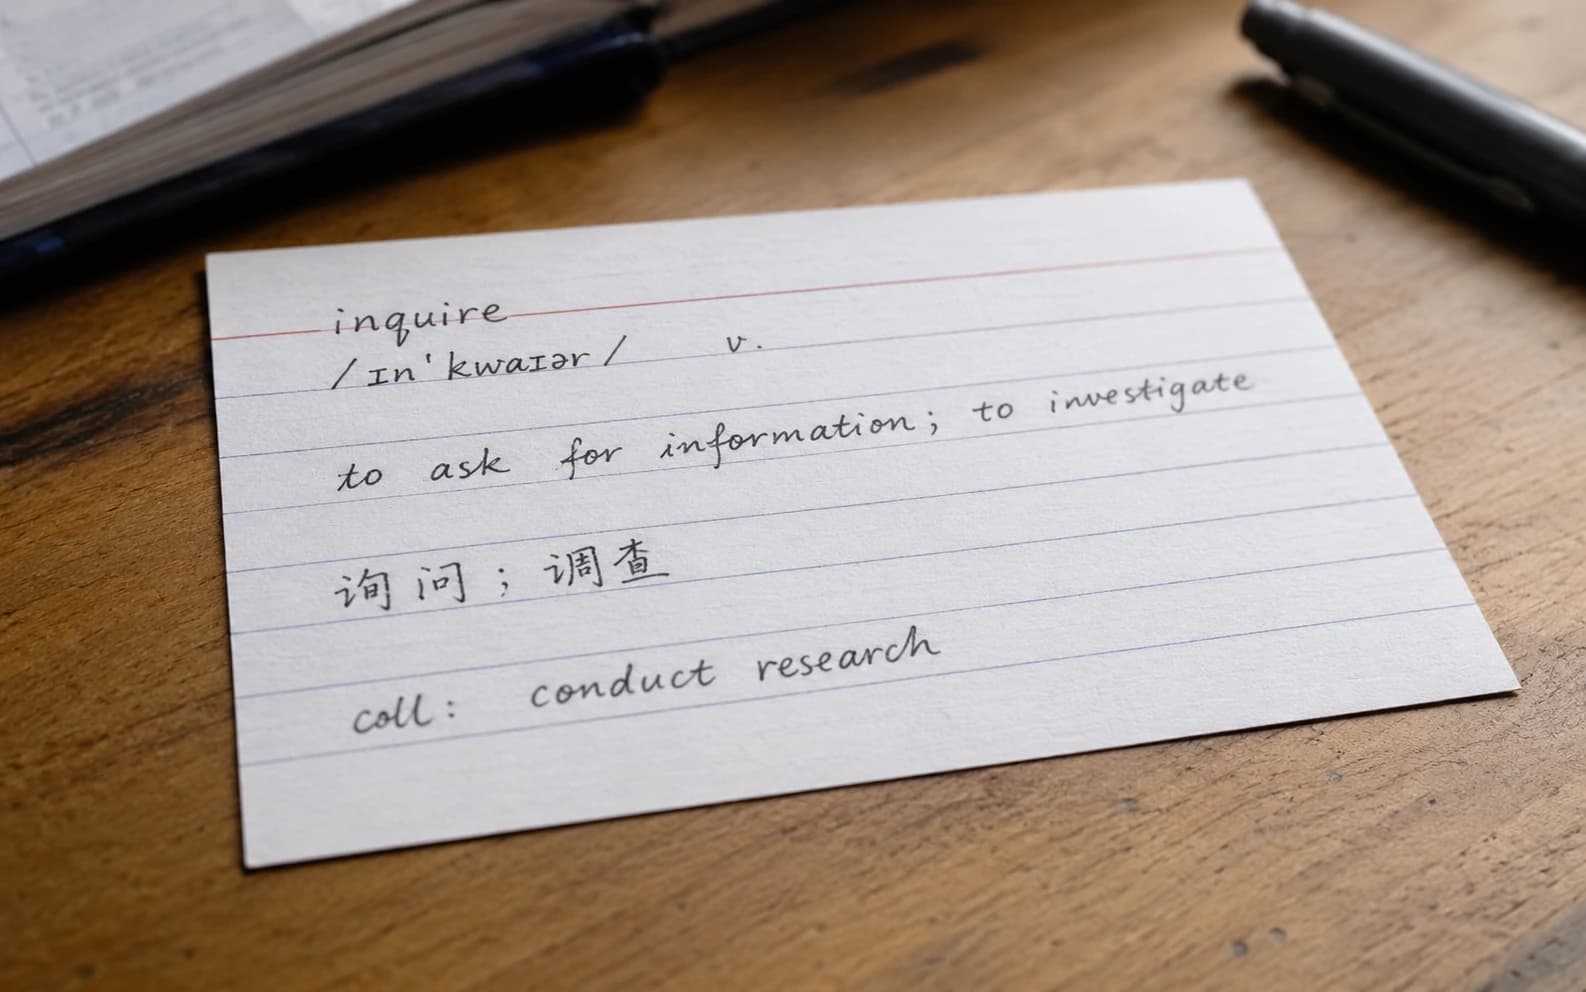 inquire
/ɪn'kwaɪər/ v.
to ask for information; to investigate
询问；调查
coll: conduct research